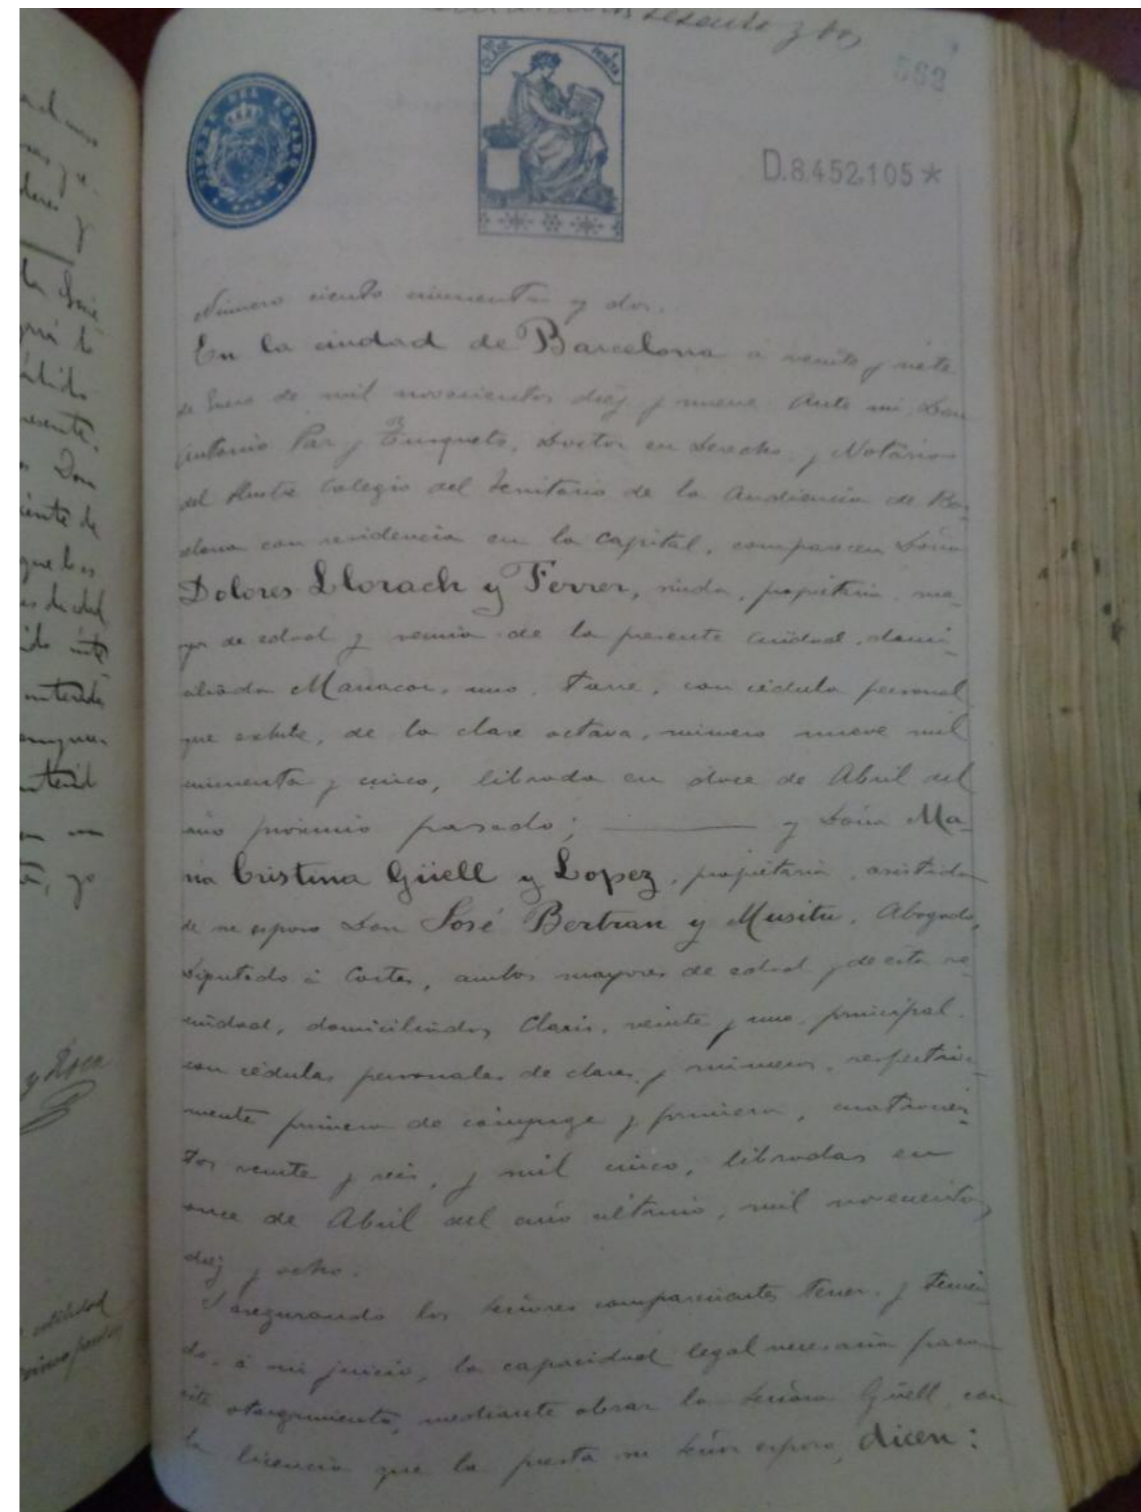 sesenta y dos
562
TIMBRE DEL ESTADO
D.8.452.105*
Número ciento cincuenta y dos.
En la ciudad de Barcelona a veinte y siete
de Enero de mil novecientos diez y nueve. Ante mi, Don
Antonio Par y Tusquets, Doctor en Derecho y Notario
del Ilustre Colegio del Territorio de la Audiencia de Bar-
celona con residencia en la capital, comparecen Doña
Dolores Llorach y Ferrer, viuda, propietaria, ma-
yor de edad y vecina de la presente ciudad, domi-
ciliada Manacor, uno, torre, con cédula personal
que exhibe, de la clase octava, número nueve mil
cincuenta y cinco, librada en doce de Abril del
año próximo pasado; y Doña Ma-
ria Cristina Güell y Lopez, propietaria, asistida
de su esposo Don José Bertran y Musitu, Abogado,
Diputado á Cortes, ambos mayores de edad y de esta ve-
cindad, domiciliados Claris, veinte y uno, principal.
con cédulas personales de clases y números, respectiva-
mente primera de cónyuge y primera, cuatrocien-
tos veinte y seis, y mil cinco, libradas en
once de Abril del año último, mil novecientos
diez y ocho.
Y asegurando los señores comparecientes tener, y tenien-
do, á mi juicio, la capacidad legal necesaria para
este otorgamiento, mediante obrar la señora Güell con
la licencia que la presta su señor esposo, dicen: